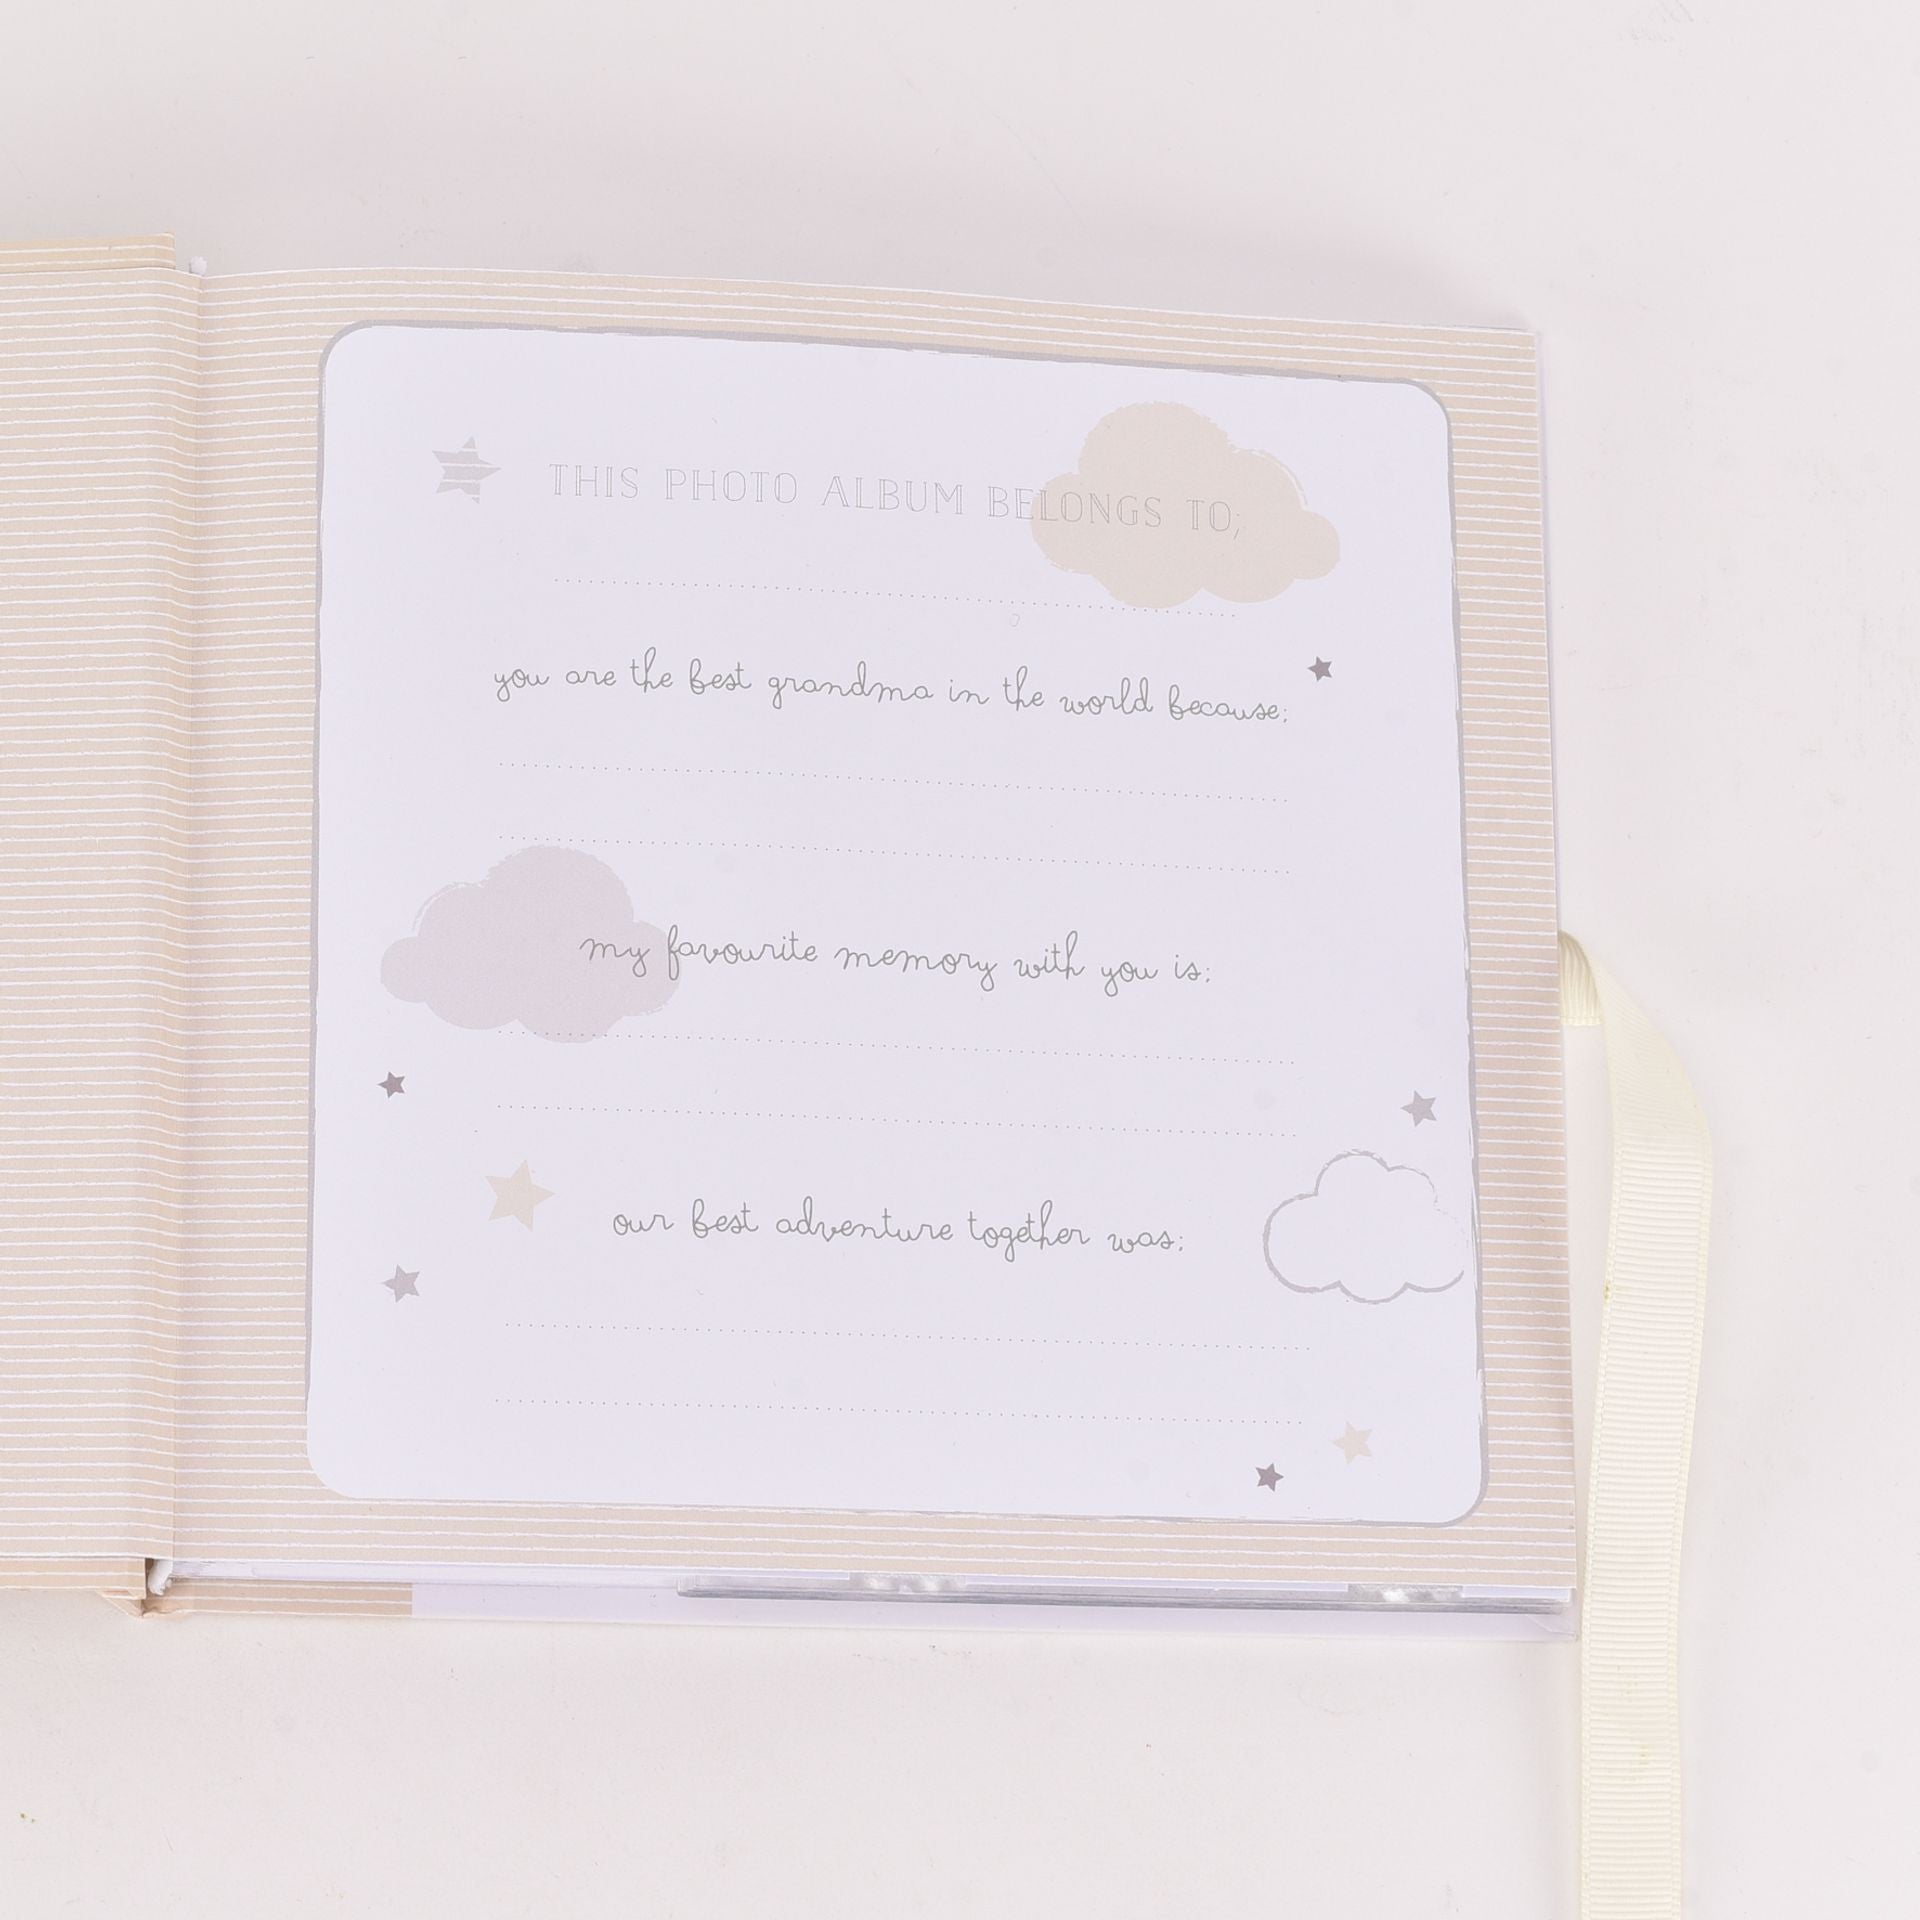 THIS PHOTO ALBUM BELONGS TO;
you are the best grandma in the world because;
my favourite memory with you is;
our best adventure together was;